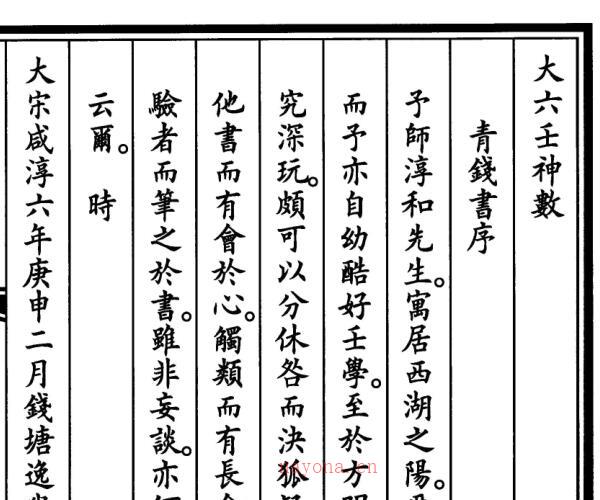 大六壬神數
青錢書序
予師淳和先生。寓居西湖之陽。
而予亦自幼酷好壬學。至於方
究深玩。頗可以分休咎而決狐
他書而有會於心。觸類而有長
驗者而筆之於書。雖非妄談。亦
云爾。 時
大宋咸淳六年庚申二月錢塘逸